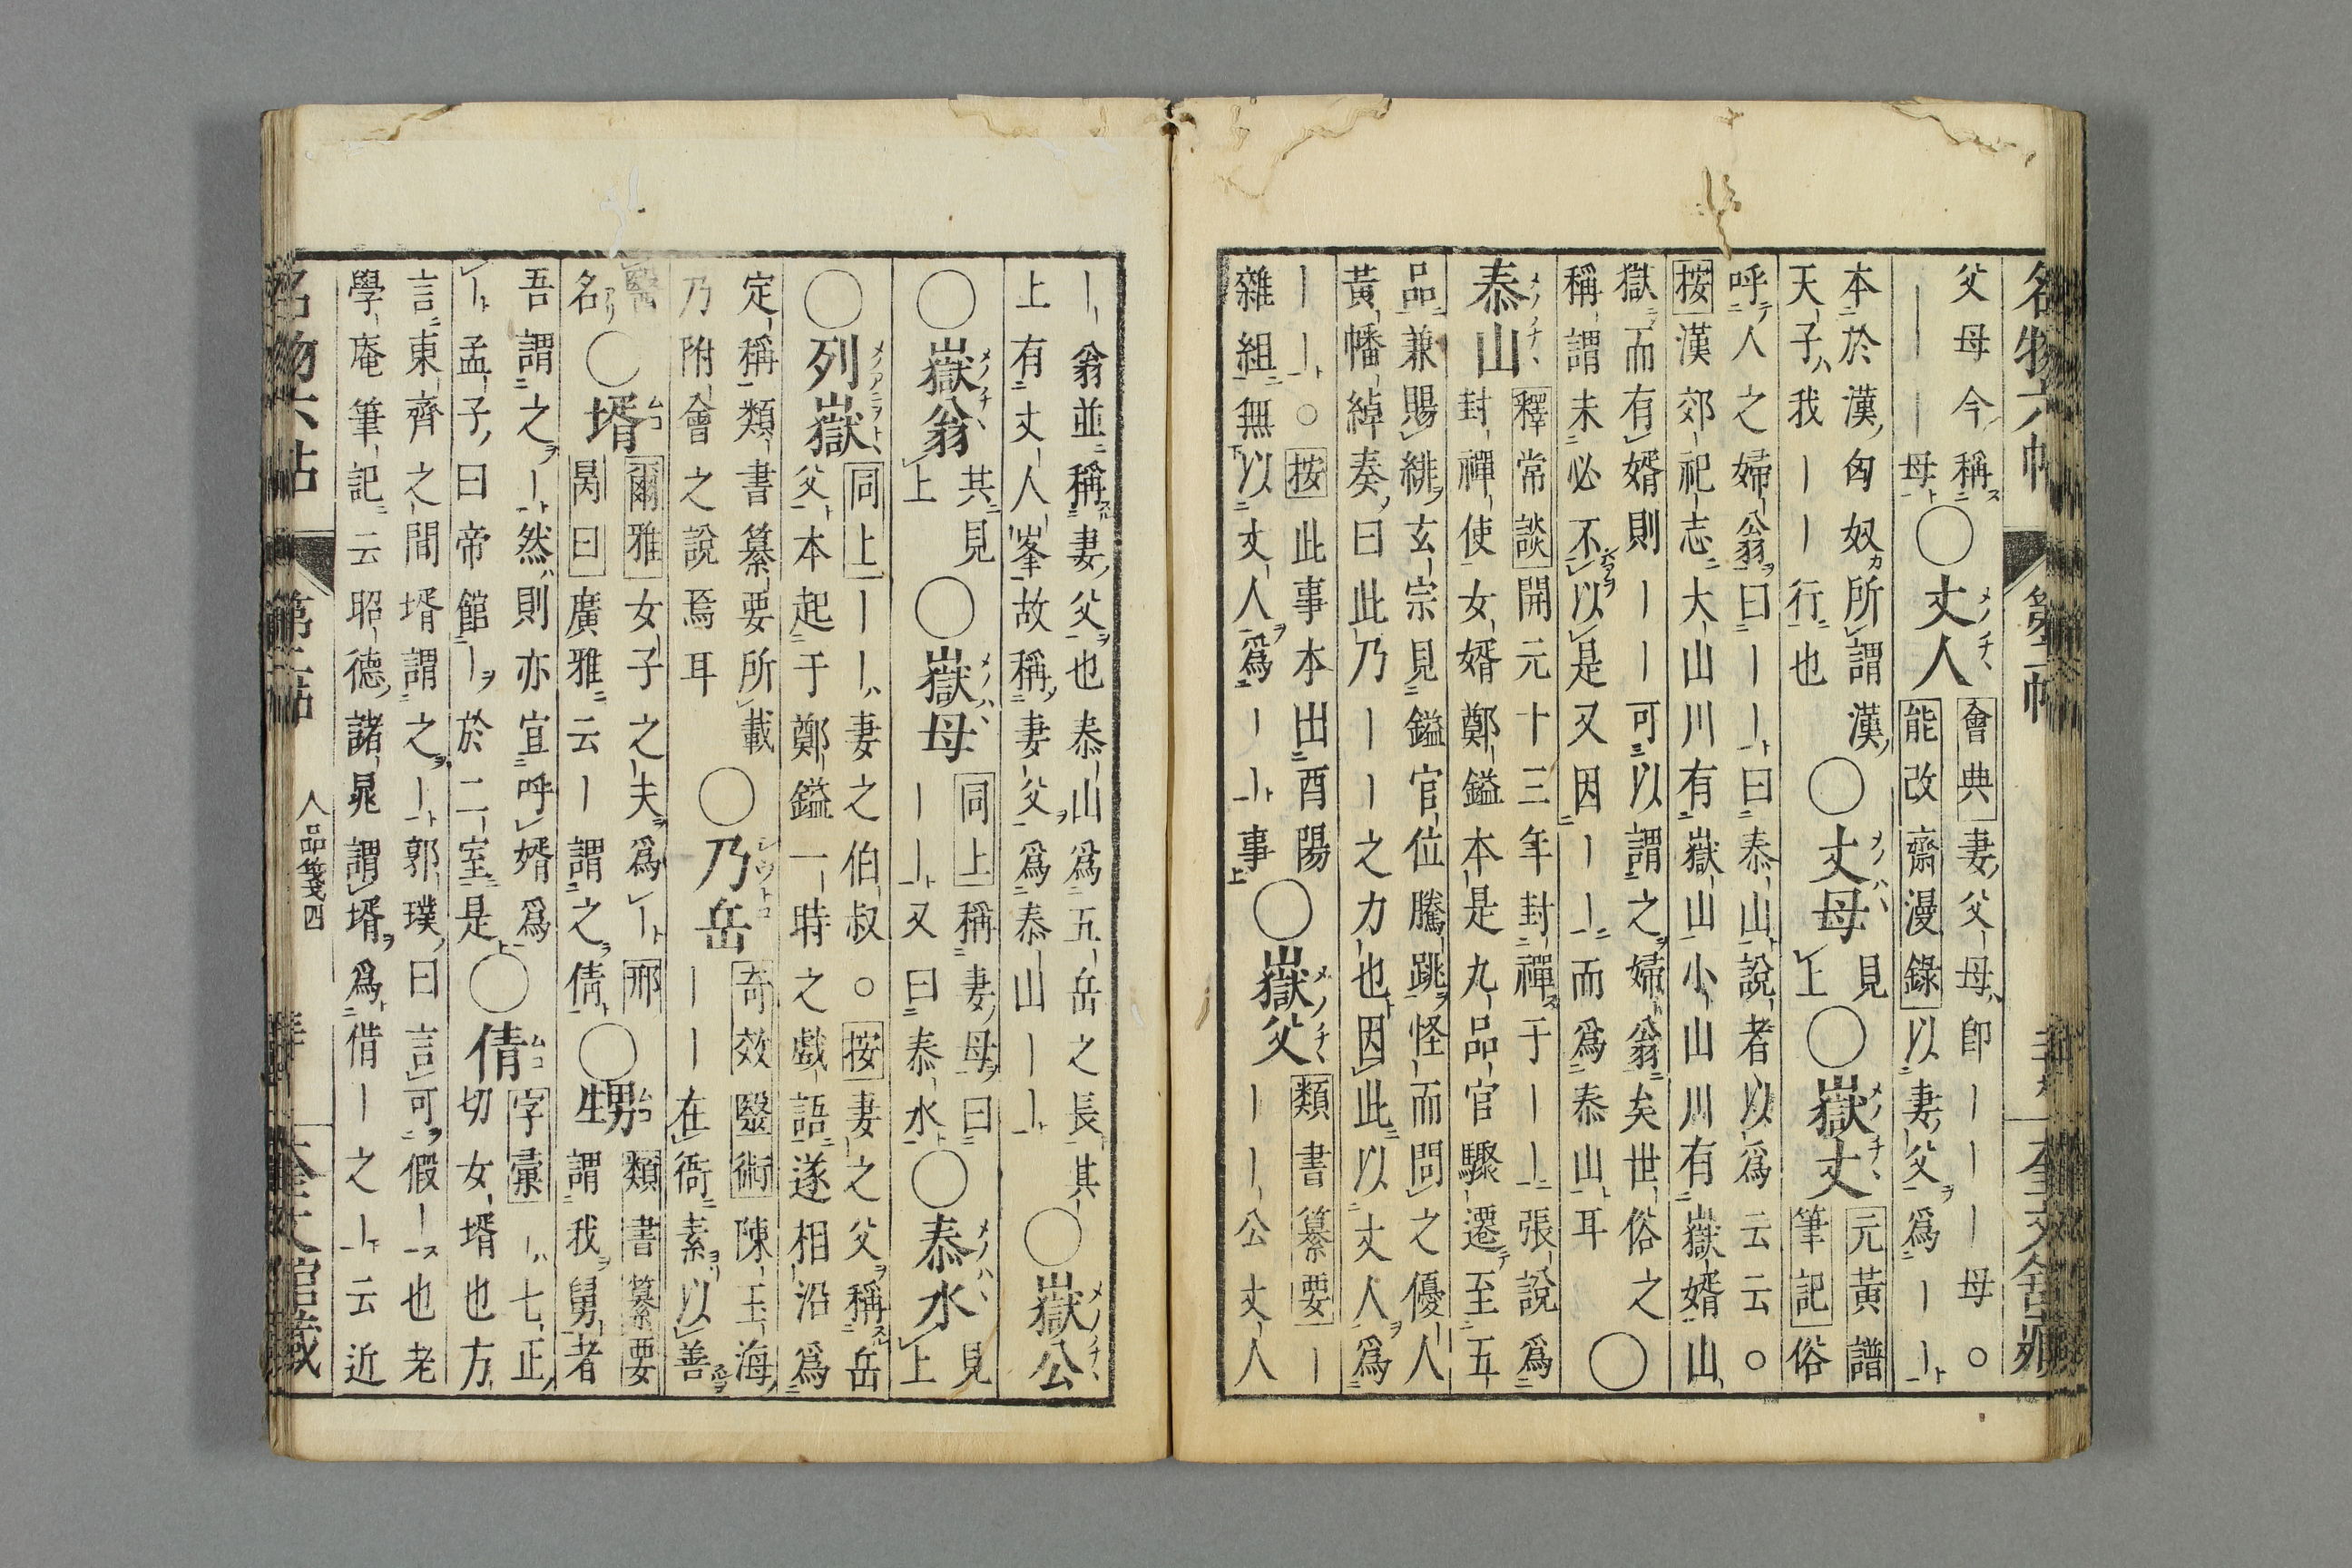 名物六帖
父母今稱
｜｜母〇丈人會典妻父母卽｜｜｜母〇
能改齋漫錄以妻父爲｜｜
本於漢匈奴所謂漢
天子我｜｜行也〇丈母見
上〇嶽丈元黃譜
筆記俗
呼人之婦翁曰｜｜曰泰山說者以爲云云〇
按漢郊祀志大山川有嶽山小山川有嶽婿山
嶽而有婿則｜｜可以謂之婦翁矣世俗之
稱謂未必不以是又因｜｜而爲泰山耳〇
泰山釋常談開元十三年封禪于｜｜張說爲
封禪使女婿鄭鎰本是九品官驟遷至五
品兼賜緋玄宗見鎰官位騰跳怪而問之優人
黃幡綽奏曰此乃｜｜之力也因此以丈人爲
｜｜〇按此事本出酉陽
雜組無以丈人爲｜｜事〇嶽父類書纂要｜
｜｜公丈人
｜翁並稱妻父也泰山爲五岳之長其
上有丈人峯故稱妻父爲泰山｜｜〇嶽公
〇嶽翁共見
上〇嶽母同上稱妻母曰
｜｜又曰泰水〇泰水見
上
〇列嶽同上｜｜妻之伯叔〇按妻之父稱岳
父本起于鄭鎰一時之戲語遂相沿爲
定稱類書纂要所載
乃附會之說焉耳〇乃岳奇效醫術陳玉海
｜｜在衙素以善
醫
名〇壻爾雅女子之夫爲｜邢
昺曰廣雅云｜謂之倩〇甥類書纂要
謂我舅者
吾謂之｜然則亦宜呼婿爲
｜孟子曰帝館｜於二室是〇倩字彙｜七正
切女壻也方
言東齊之間壻謂之｜郭璞曰言可假｜也老
學庵筆記云昭德諸晁謂壻爲借｜之｜云近
人品箋四